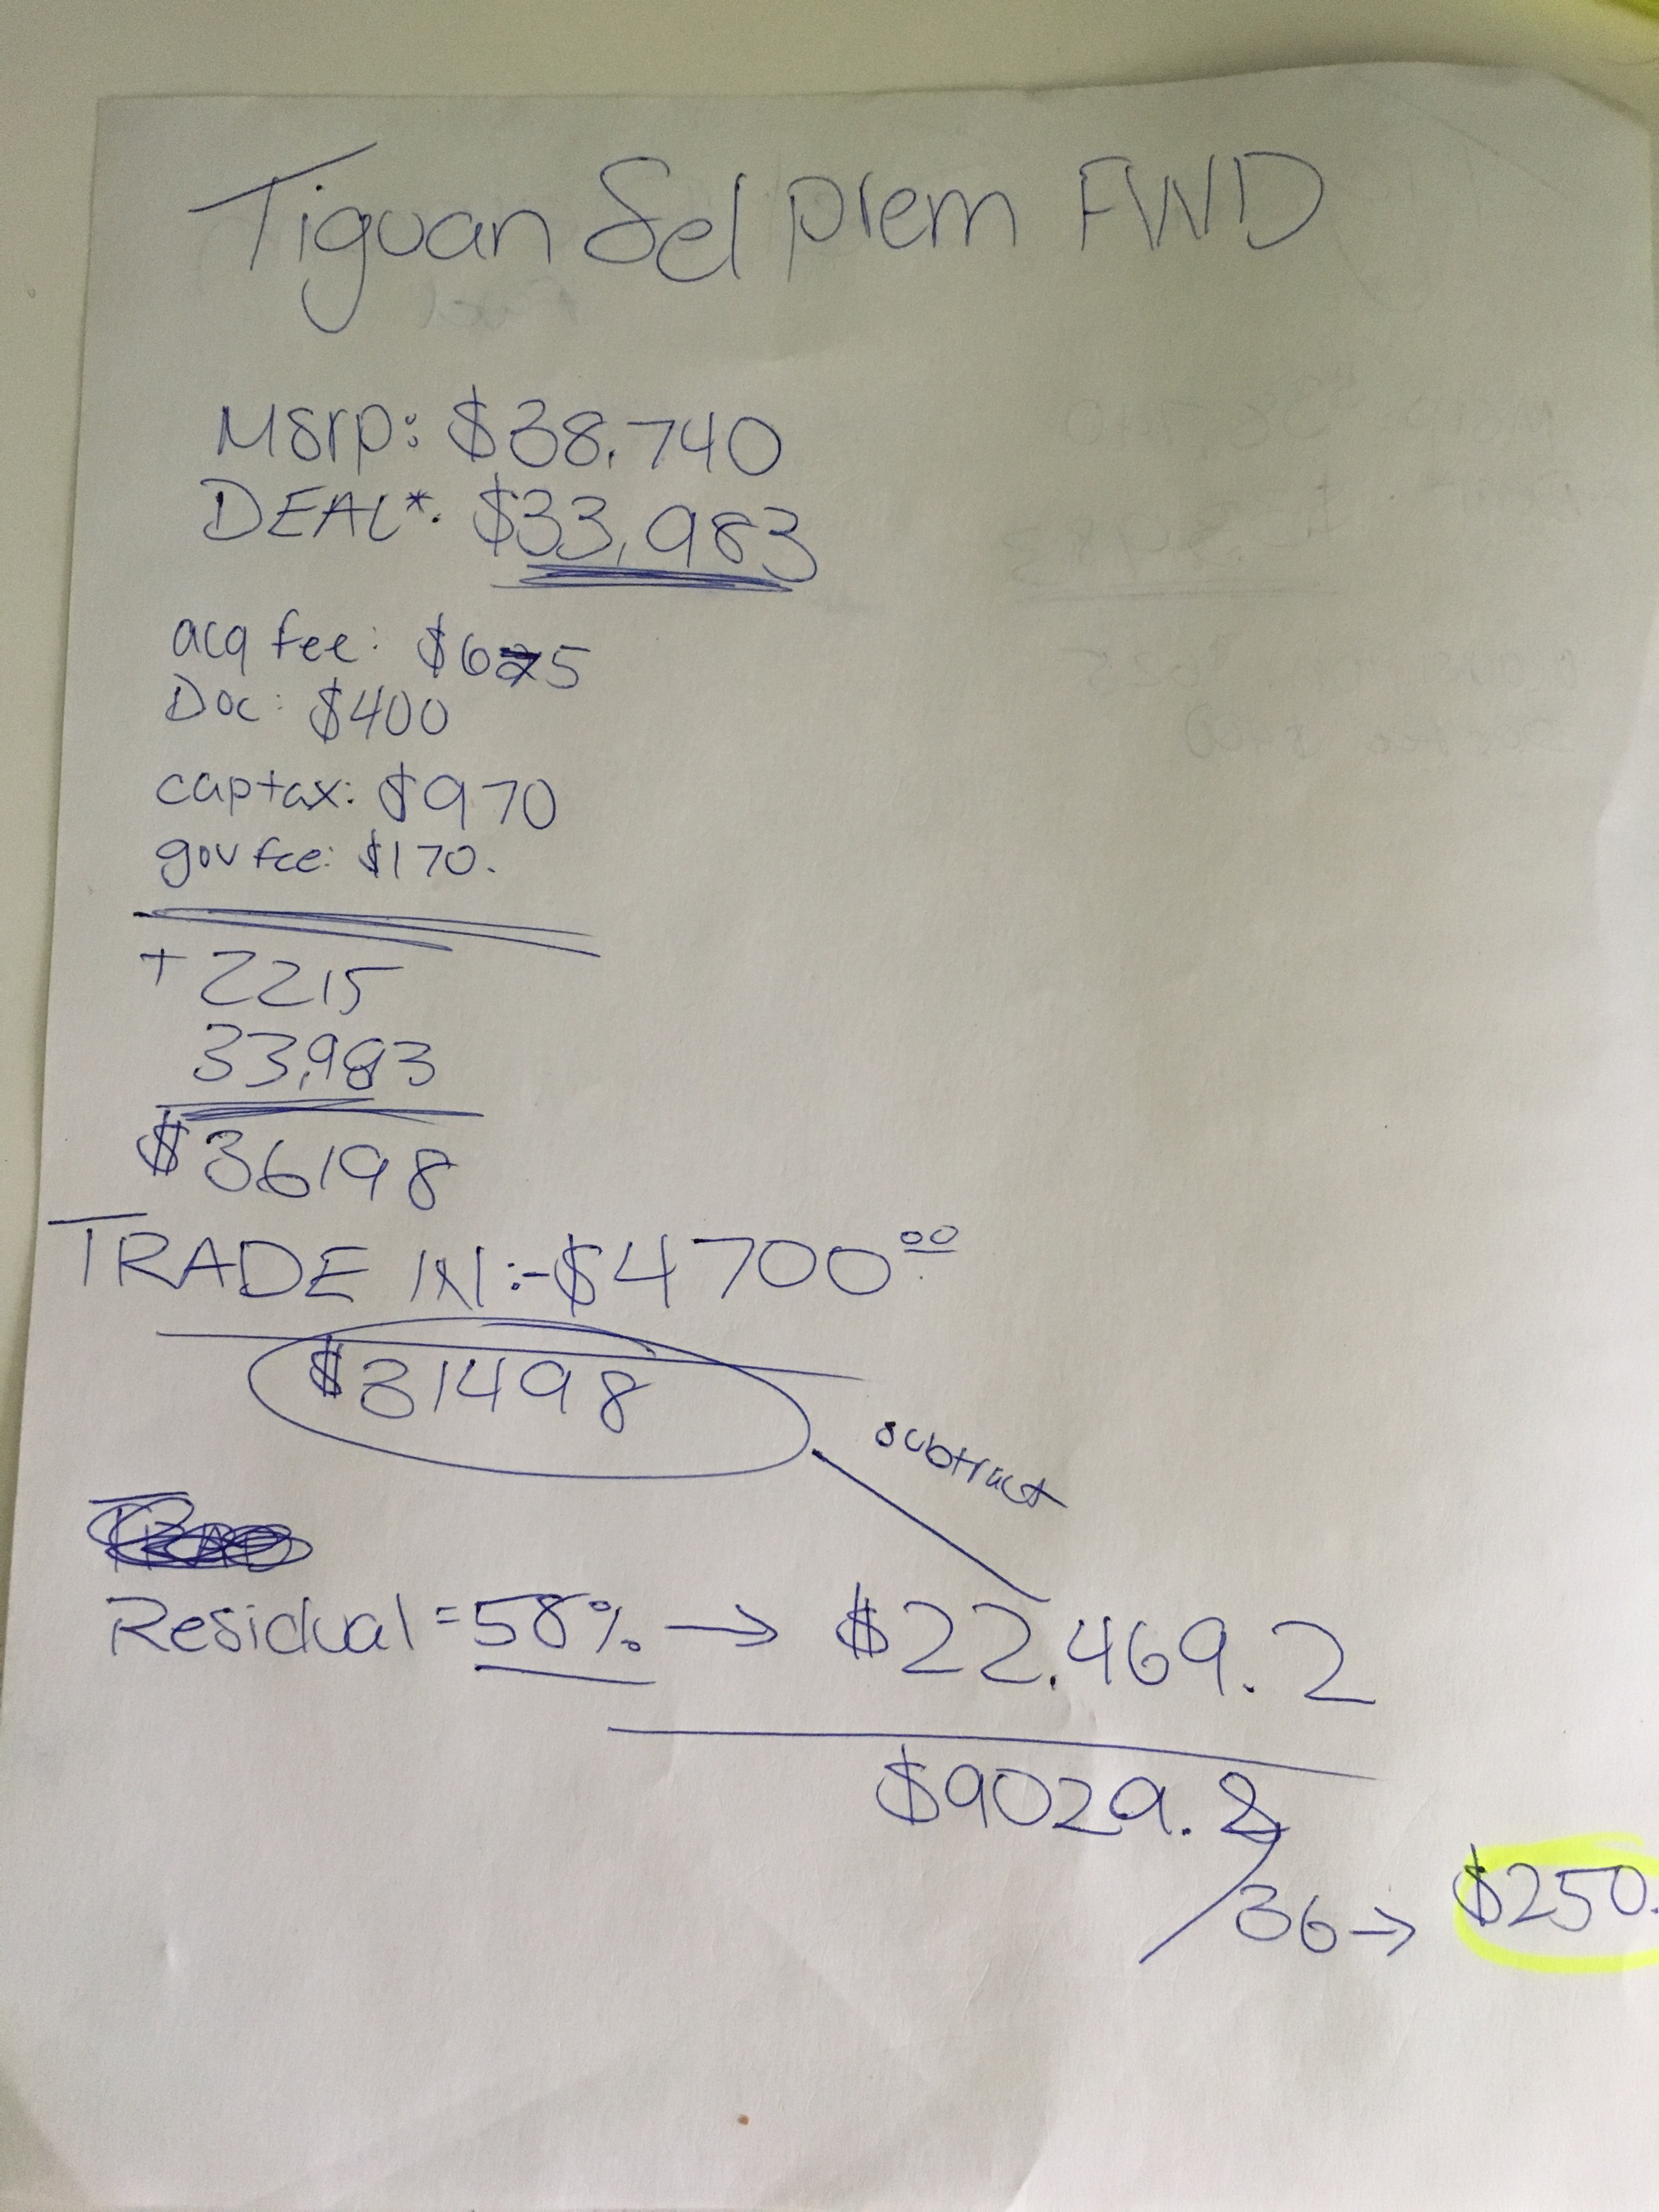 Tiguan Sel prem FWD
Msrp: $38.740
DEAL*: $33,983
acq fee: $675
Doc: $400
captax: $970
gov fee: $170.
+ 2215
33,983
$36198
TRADE IN: -$4700.00
$31498
subtract
Residual = 58% → $22.469.2
$9029.2
/36 → $250.